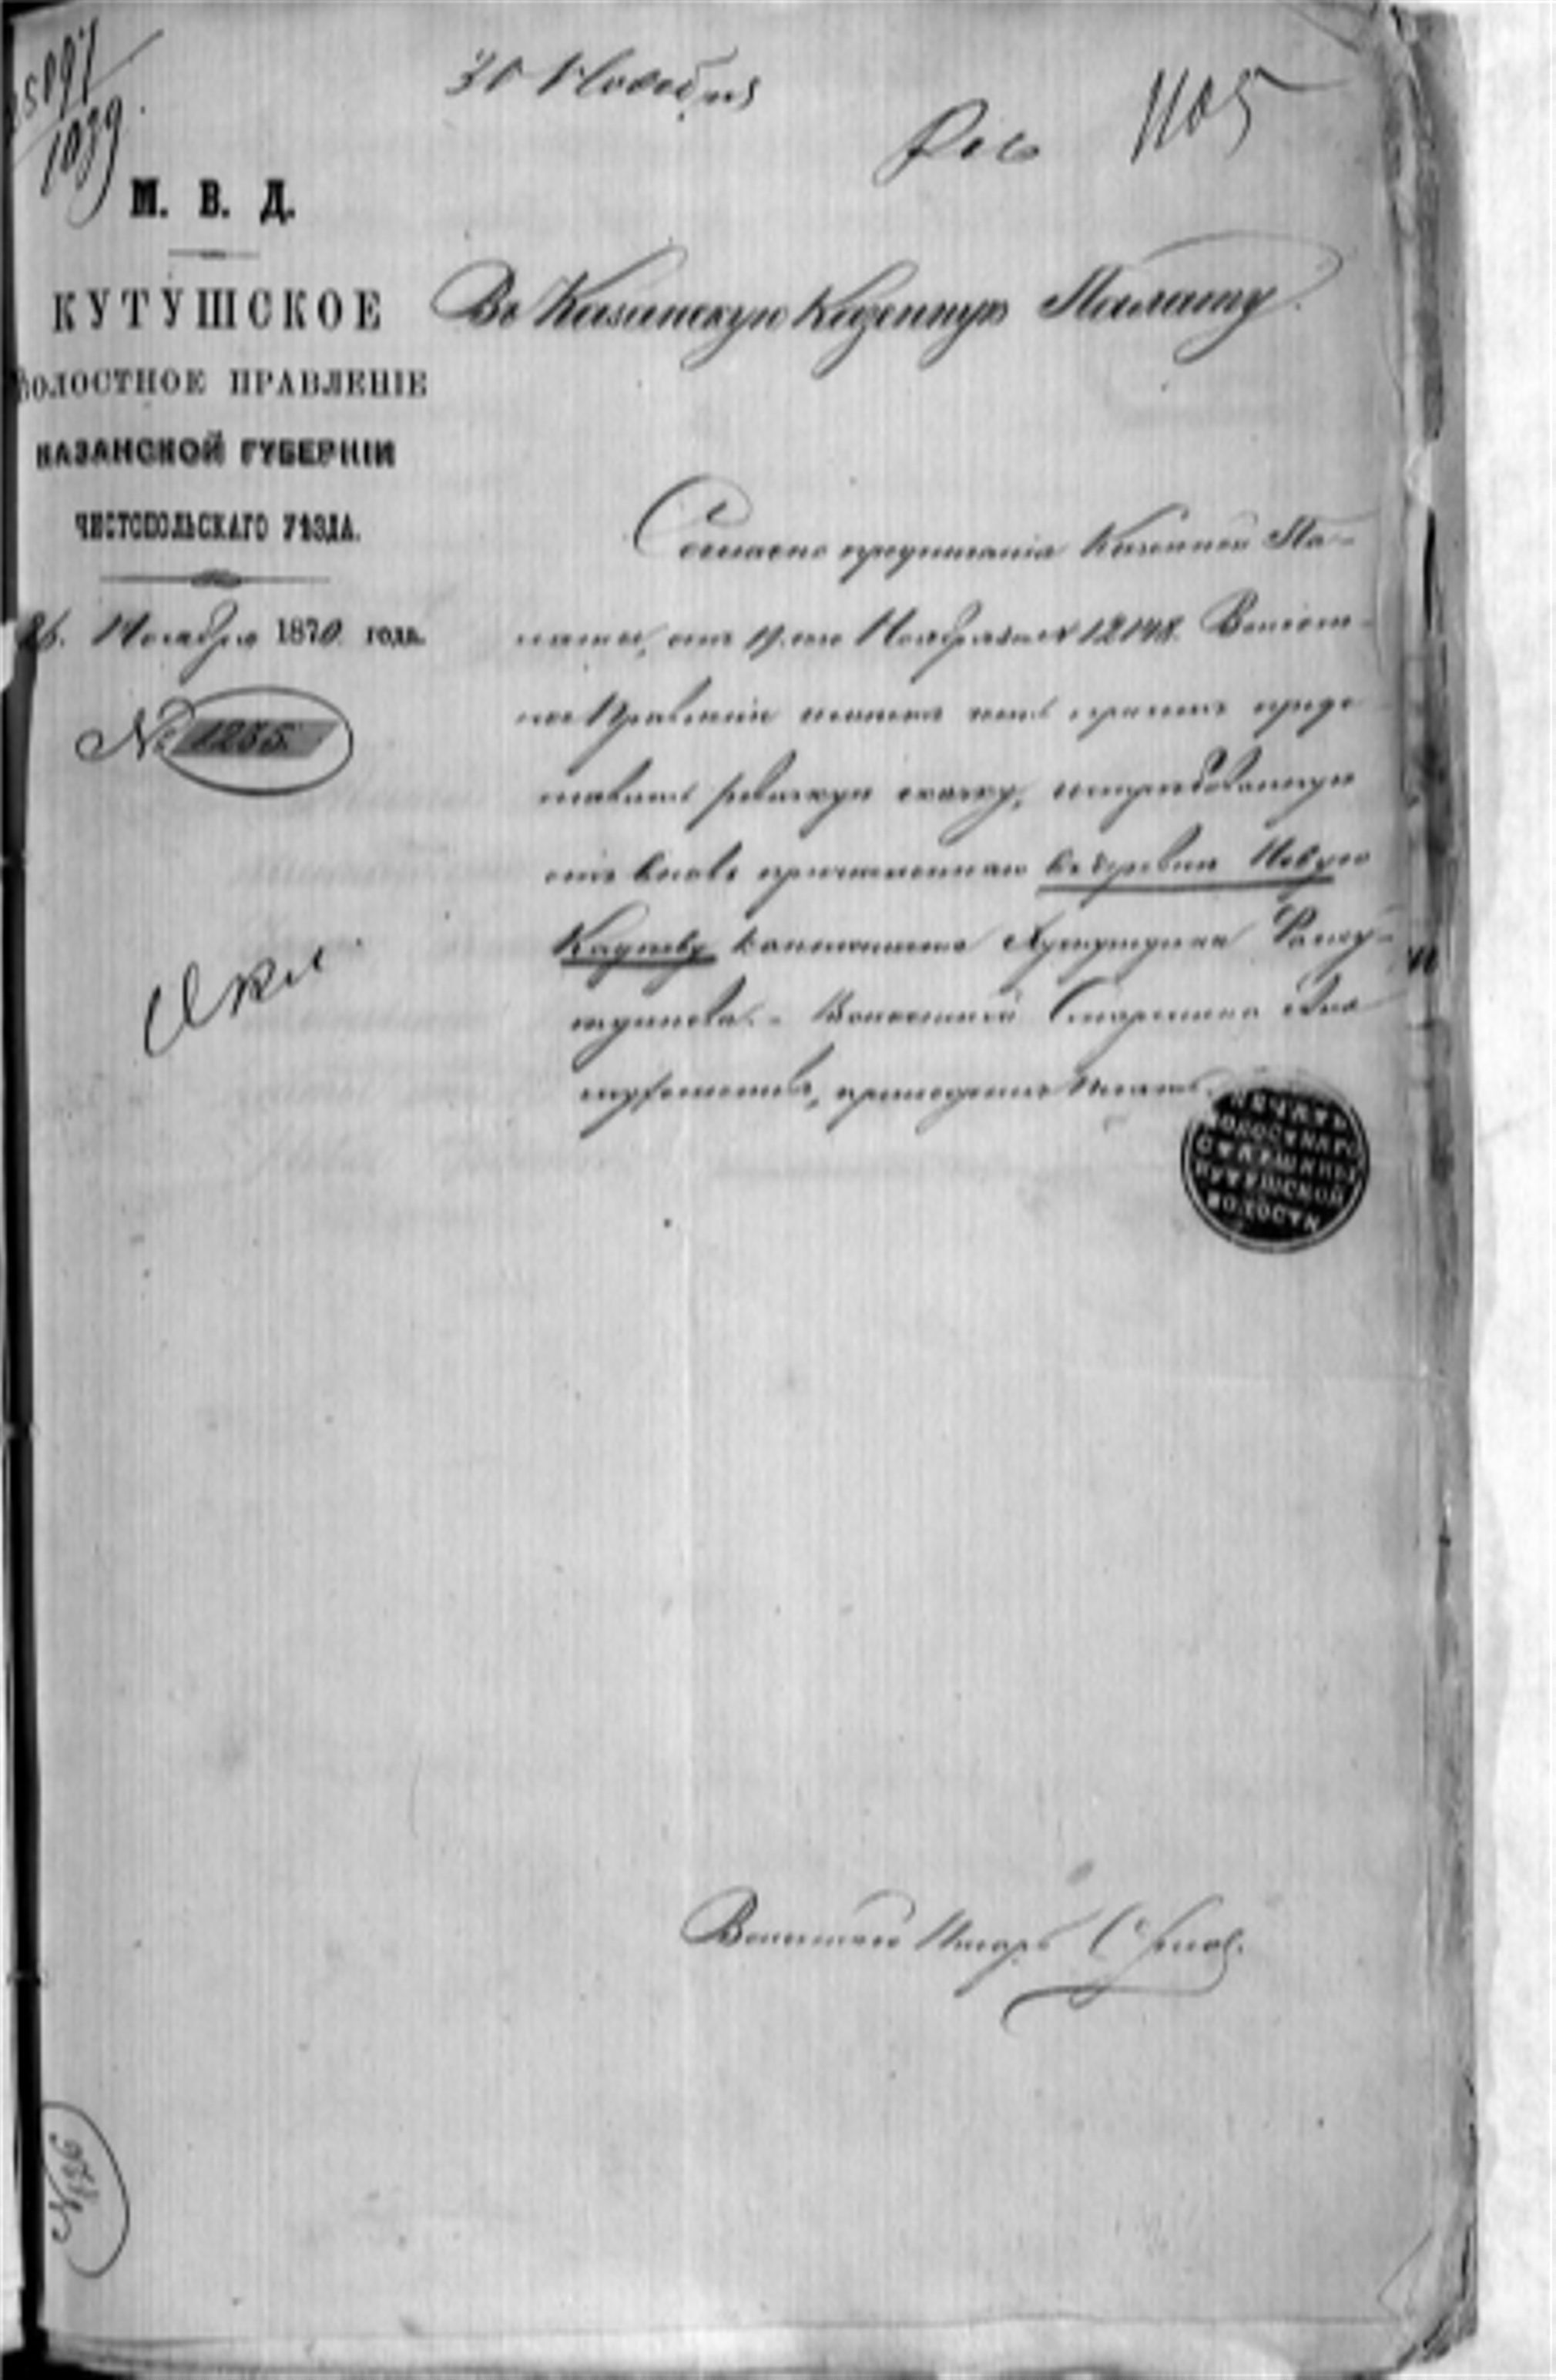 25097
1039
30 Ноября
1105
М. В. Д.
КУТУШСКОЕ
ВОЛОСТНОЕ ПРАВЛЕНІЕ
КАЗАНСКОЙ ГУБЕРНІИ
ЧИСТОПОЛЬСКАГО УѢЗДА.
26. Ноября 1870 года.
№ 1235.
Въ Казанскую Казенную Палату.
Согласно предписанія Казенной Па-
латы, отъ 19.го Ноября за № 12148. Волост-
ное Правленіе имѣетъ честь при семъ пред-
ставить ревизскую сказку, истребованную
отъ вновь причисленнаго въ деревню Новую
Кадѣеву
Волостной Старшина
приложилъ печать.
ПЕЧАТЬ
ВОЛОСТНАГО
СТАРШИНЫ
КУТУШСКОЙ
ВОЛОСТИ
Волостной Писарь
№ 126